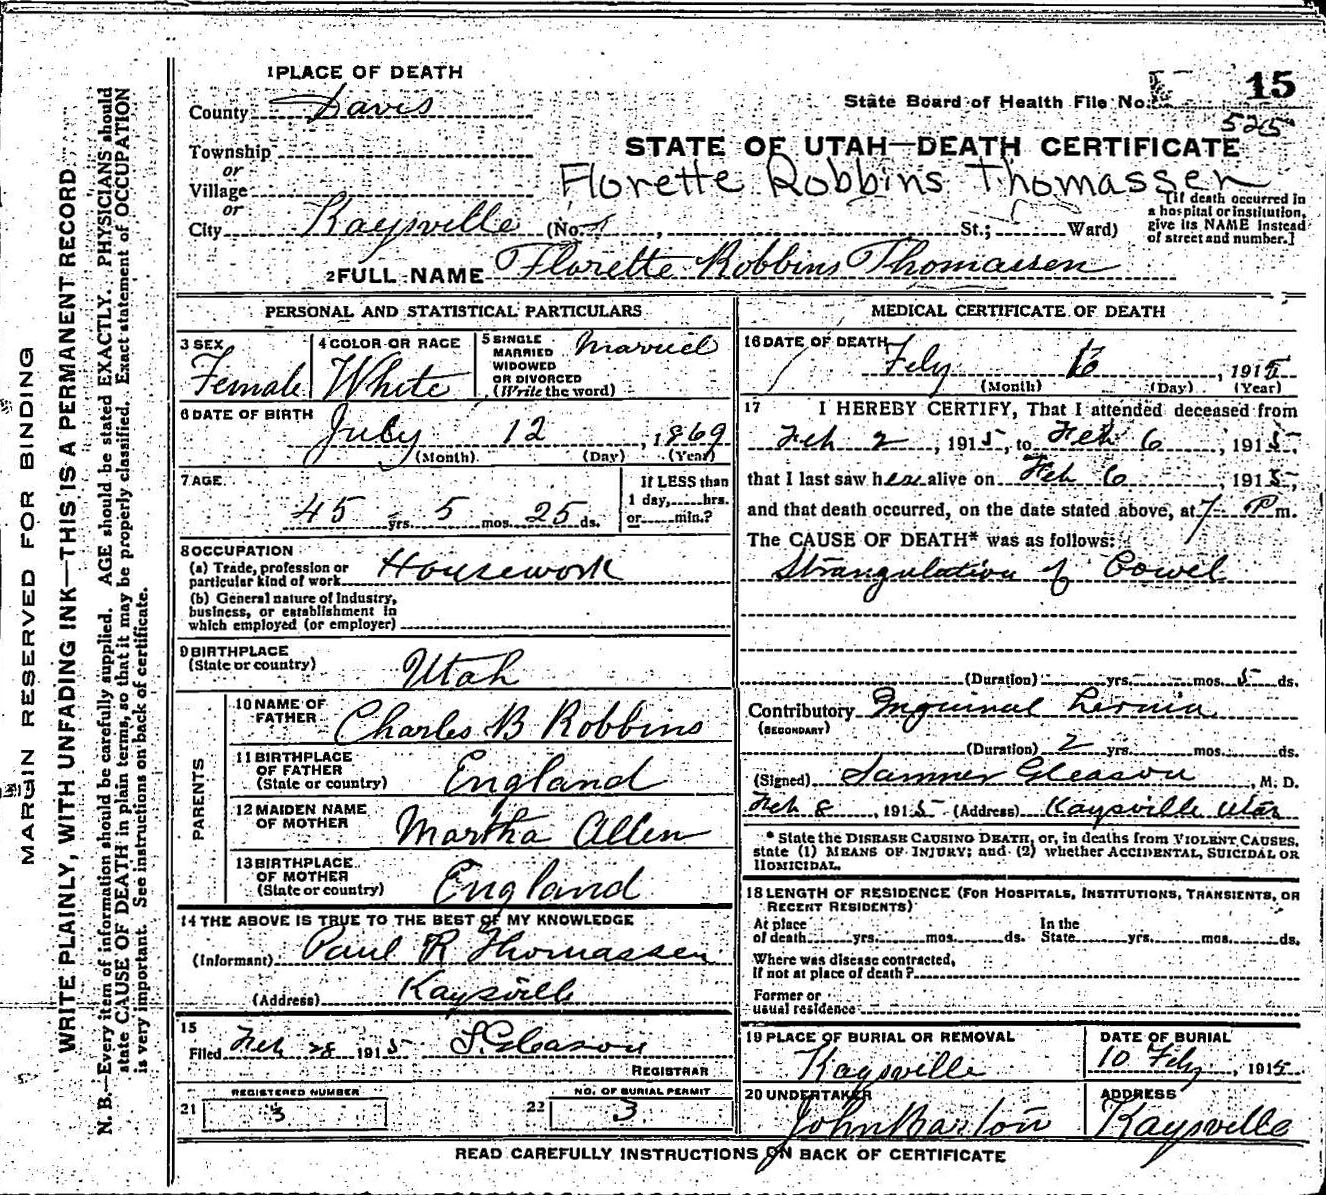 MARGIN RESERVED FOR BINDING
WRITE PLAINLY, WITH UNFADING INK—THIS IS A PERMANENT RECORD
N. B.—Every item of information should be carefully supplied. AGE should be stated EXACTLY. PHYSICIANS should
state CAUSE OF DEATH in plain terms, so that it may be properly classified. Exact statement of OCCUPATION
is very important. See instructions on back of certificate.
1 PLACE OF DEATH
County Davis
Township
or
Village
or
City Kaysville (No. St.; Ward)
State Board of Health File No. 15
525
STATE OF UTAH—DEATH CERTIFICATE
Florette Robbins Thomassen
[If death occurred in
a hospital or institution,
give its NAME instead
of street and number.]
2 FULL NAME Florette Robbins Thomassen
PERSONAL AND STATISTICAL PARTICULARS
3 SEX
Female
4 COLOR OR RACE
White
5 SINGLE
MARRIED
WIDOWED
OR DIVORCED
(Write the word)
Married
6 DATE OF BIRTH
July 12, 1869
(Month) (Day) (Year)
7 AGE
45 yrs. 5 mos. 25 ds.
If LESS than
1 day, hrs.
or min.?
8 OCCUPATION
(a) Trade, profession or
particular kind of work Housework
(b) General nature of Industry,
business, or establishment in
which employed (or employer)
9 BIRTHPLACE
(State or country) Utah
PARENTS
10 NAME OF
FATHER Charles B Robbins
11 BIRTHPLACE
OF FATHER
(State or country) England
12 MAIDEN NAME
OF MOTHER Martha Allen
13 BIRTHPLACE
OF MOTHER
(State or country) England
14 THE ABOVE IS TRUE TO THE BEST OF MY KNOWLEDGE
(Informant) Paul R Thomassen
(Address) Kaysville
15
Filed Feb 28 1915 S. Gleason
REGISTRAR
REGISTERED NUMBER
21 3
NO. OF BURIAL PERMIT
22 3
MEDICAL CERTIFICATE OF DEATH
16 DATE OF DEATH
Feby 6, 1915
(Month) (Day) (Year)
17 I HEREBY CERTIFY, That I attended deceased from
Feb 2, 1915, to Feb 6, 1915,
that I last saw her alive on Feb 6, 1915,
and that death occurred, on the date stated above, at 7 P m.
The CAUSE OF DEATH* was as follows:
Strangulation of Bowel
(Duration) yrs. mos. 5 ds.
Contributory Inguinal hernia
(SECONDARY)
(Duration) 2 yrs. mos. ds.
(Signed) Sumner Gleason, M. D.
Feb 8, 1915 (Address) Kaysville Utah
* State the DISEASE CAUSING DEATH, or, in deaths from VIOLENT CAUSES,
state (1) MEANS OF INJURY; and (2) whether ACCIDENTAL, SUICIDAL OR
HOMICIDAL.
18 LENGTH OF RESIDENCE (FOR HOSPITALS, INSTITUTIONS, TRANSIENTS, OR
RECENT RESIDENTS)
At place
of death yrs. mos. ds.
In the
State yrs. mos. ds.
Where was disease contracted,
if not at place of death?
Former or
usual residence
19 PLACE OF BURIAL OR REMOVAL
Kaysville
DATE OF BURIAL
10 Feby, 1915
20 UNDERTAKER
John Barton
ADDRESS
Kaysville
READ CAREFULLY INSTRUCTIONS ON BACK OF CERTIFICATE